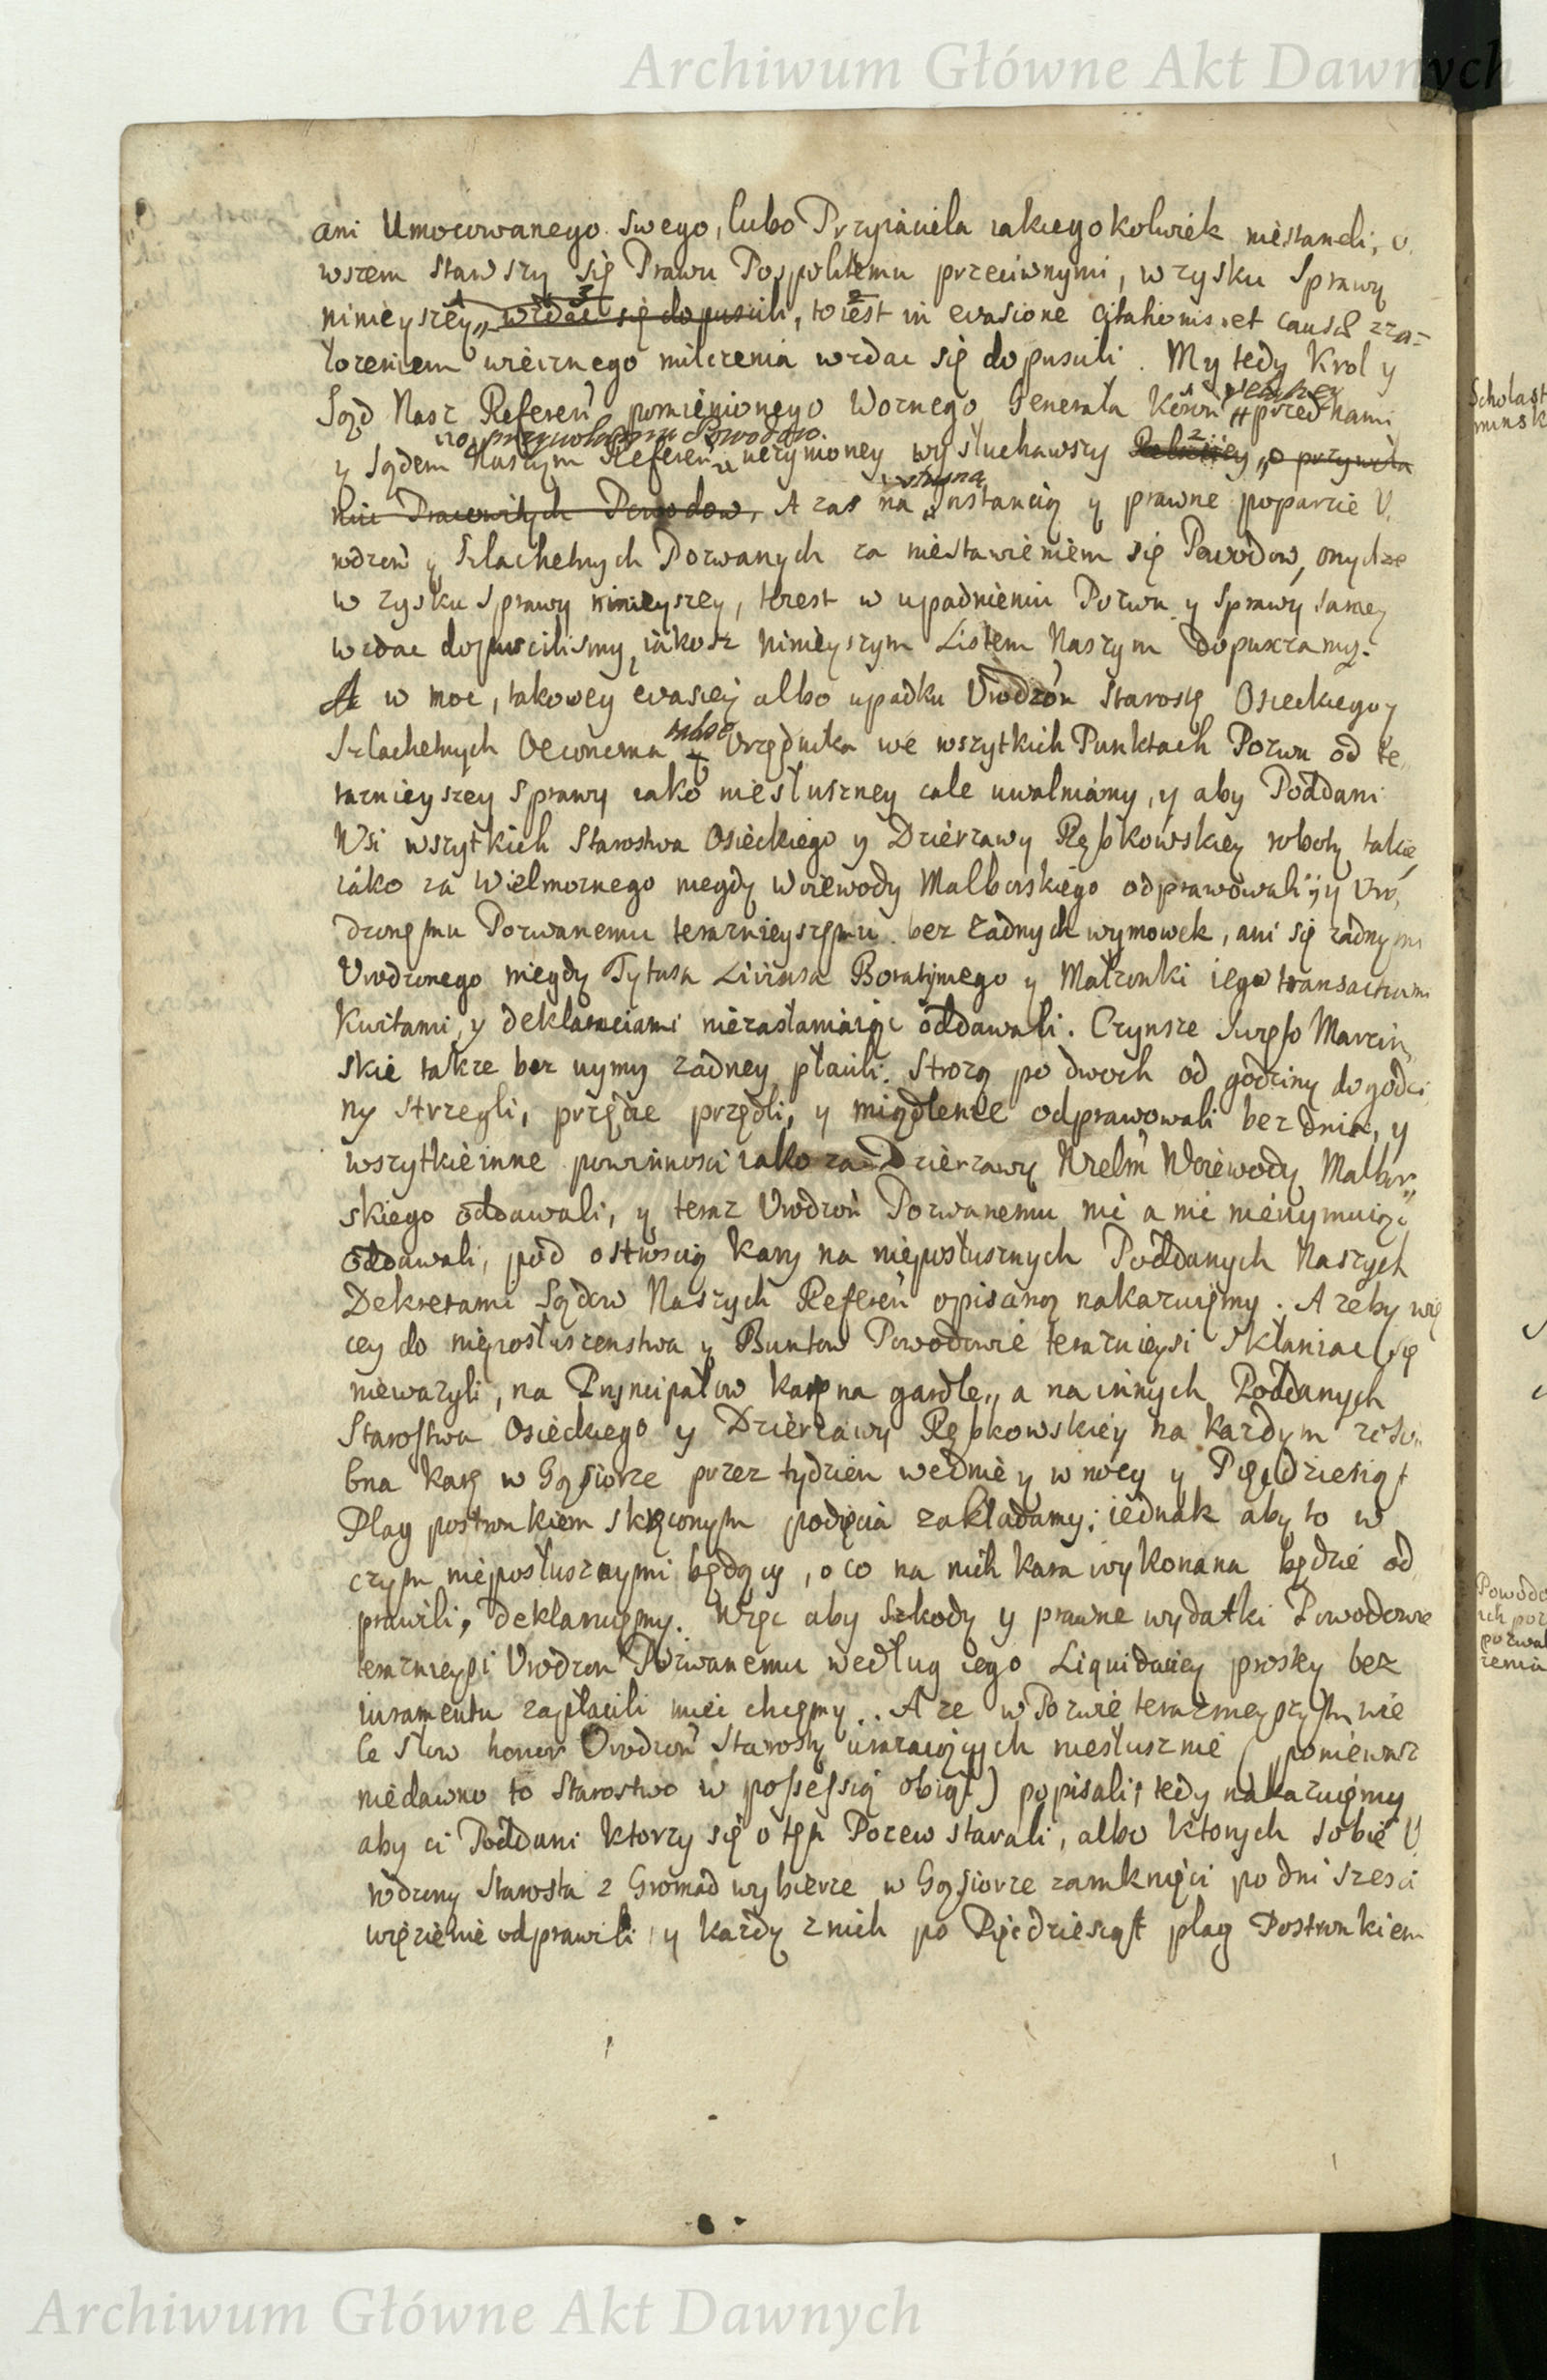 Archiwum Główne Akt Dawnych
ani Umocowanego swego, lubo Przyiaciela iakiegokolwiek niestaneli, o
wszem stawszy się Prawu Pospolitemu przeciwnymi, w zysku Sprawy
ninieyszey wzdac się dopuscili, toiest in evasione Citationis et causæ z za=
łozeniem wiecznego milczenia wzdac się dopuscili. My tedy Krol y
Sąd Nasz Referen pomienionego Woznego Generała Koron # przed nami
o przywołaniu Powodow
y Sądem Naszym Referen uczynioney wysłuchawszy Relaciey o przywoła
niu Pracowitych Powodow, A zas na Instancią y prawne poparcie U
rodzon y Szlachetnych Pozwanych za niestawieniem się Powodow, onychze
w zysku Sprawy ninieyszey, toiest w upadnieniu Pozwu y Sprawy samey
wzdac dopuscilismy, iakosz ninieyszym Listem Naszym dopuszczamy.
A w moc, takowey evasiey albo upadku Urodzon Starostę Osieckiego y
Szlachetnych Oeconoma Urzędnika we wszytkich Punktach Pozwu od te
raznieyszey Sprawy iako niesłuszney cale uwalniamy, y aby Poddani
Wsi wszytkich Starostwa Osieckiego y Dzierzawy Rębkowskiey roboty takie,
iako za Wielmoznego niegdy Woiewody Malborskiego odprawowali y Uro
dzonemu Pozwanemu teraznieyszemu bez zadnych wymowek, ani się zadnymi
Urodzonego niegdy Tytusa Liviusa Boratyniego y Małzonki iego transactiami
Kwitami, y deklaraciami niezasłaniaiąc oddawali. Czynsze Marcin
skie takze bez uymy zadney płacili. Strozą po dwoch od godziny do godzi
ny strzegli, przędze przędli, y międlenie odprawowali bez dnia, y
wszytkie inne powinnosci iako za Dzierzawy Wielm Woiewody Malbor
skiego oddawali, y teraz Urodzon Pozwanemu nic a nic nieuymuiąc
oddawali, pod ostroscią kary na nieposłusznych Poddanych Naszych
Dekretami Sądow Naszych Referen opisaną nakazuiemy. A zeby wię
cey do nieposłuszenstwa y Buntow Powodowie teraznieysi skłaniac się
niewazyli, na Pryncipałow karę na gardle, a na innych Poddanych
Starostwa Osieckiego y Dzierzawy Rębkowskiey na kazdym zoso
bna karę w Gąsiorze przez tydzien wednie y w nocy y Pięcdziesiąt
Plag postronkiem skręconym podięcia zakładamy; iednak aby to w
czym nieposłusznymi będący, o co na nich kara wykonana będzie od
prawili, deklaruiemy. Więc aby szkody y prawne wydatki Powodowie
teraznieysi Urodzon Pozwanemu według iego Liquidaciey prostey bez
iuramentu zapłacili miec chcemy. A ze w Pozwie teraznieyszym wie
le słow honor Urodzon Starosty urazaiących niesłusznie (poniewasz
niedawno to Starostwo w possessią obiął) popisali, tedy nakazuiemy
aby ci Poddani ktorzy się o ten Pozew starali, albo ktorych sobie U
rodzony Starosta z Gromad wybierze w Gąsiorze zamknięci po dni szesci
więzienie odprawili y kazdy z nich po Pięcdziesiąt plag Postronkiem
Archiwum Główne Akt Dawnych